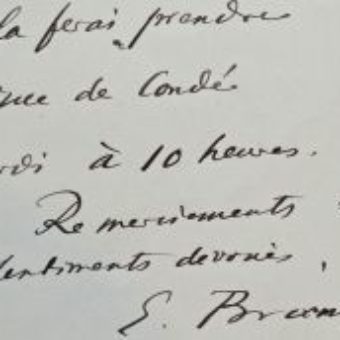 la ferai prendre
de Condé
à 10 heures.
Remerciements
sentiments dévoués,
E.